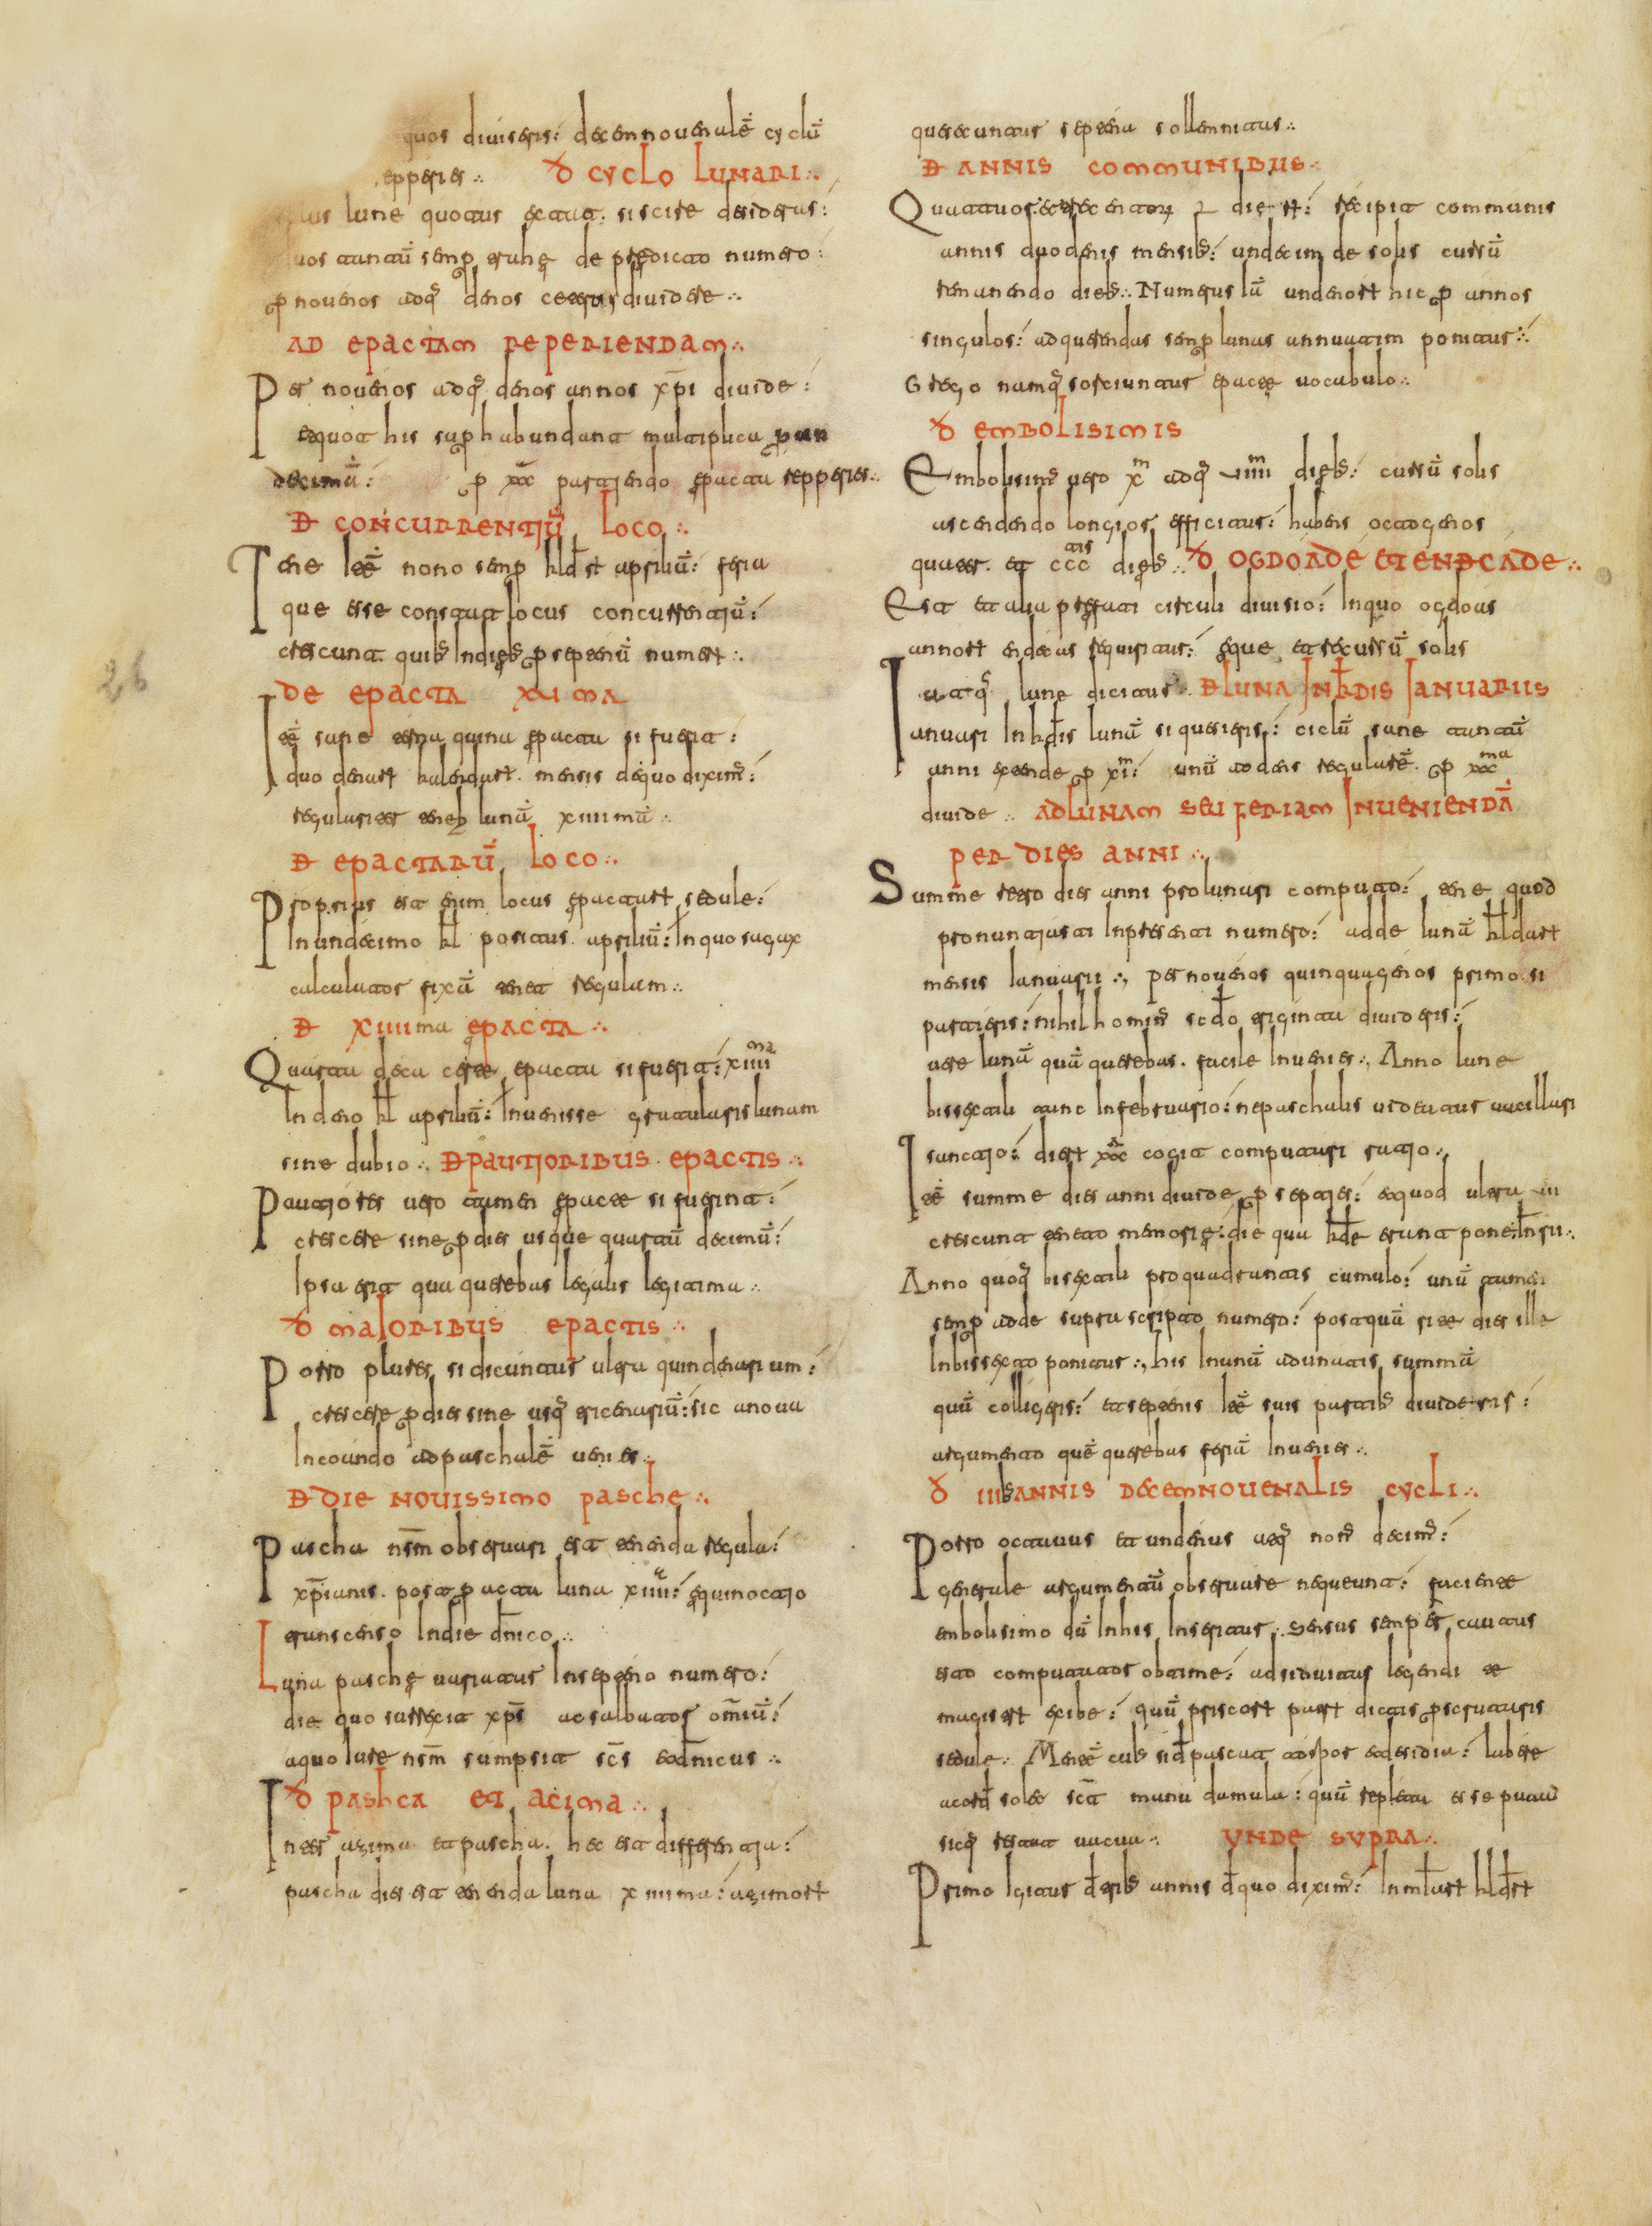 quos diviseris: decennovenalē cyclū
epperies :. D cyclo lunari :.
lus lune quotus extat. si scire desideras:
uos tantū semp trahe de predicto numero:
p novenos adq denos ceteros dividere :.
AD epactam reperiendam :.
Per novenos adq denos annos xp̄i divide:
et quot his suphabundant multiplica p un
decimū: p xxx partiendo epactā repperies :.
D concurrentiū loco :.
Tene lēē nono semp kld̄st apriliū: feria
que esse constat locus concurrentiū:
crescunt. quibs In diebs p septenū numerū :.
De epacta xui ma
Iēē sane terna quina epacta si fuerit:
duo denarū kalendarū. mensis dequo diximus:
regularester teneb lunā xiiii mā :.
D epactarū loco :.
Proprius est enim locus epactarū sedule:
In undecimo kl positus apriliū: In quo sagax
calculator fixā tenet regulam :.
D xiiii ma epacta :.
Quarta deca terie epacta si fuerit: xiiii ma
In deno kl apriliū: Invenisse gratularis lunam
sine dubio :. D pautioribus epactis :.
Pautiores vero tamen epacte si fuerint:
crescere sine p dies usque quartū decimū:
Ipsa erit qua querebas legalis legitima :.
D maioribus epactis :.
Porro plures si dicuntur ultra quindenarium:
crescere p dies sine usq tricenariū: sic a nova
Incoando ad paschalē venies :.
D die novissimo pasche :.
Pascha nsm̄ observari est tenenda regula:
xp̄ianis. post p acta luna xiiii: equinoctio
transcenso In die dn̄ico :.
Luna pasche variatur In septeno numero:
die quo surrexit xps̄ ac salvator om̄iū:
a quo lure nsm̄ sumpsit scs̄ et dn̄icus :.
D pashca et acima :.
Inter azima et pascha. hec est differentia:
pascha dies est tenenda luna x iiii ma: azimorū
que secuntur septena sollemnitas :.
D annis communibus :.
Quattuor et recentor L diest: recipit communis
annis duodenis mensibs: undecim de solis cursū
remanendo diebs :. Numerus lū undenorū hic p annos
singulos: ad querendas semp lunas annuatim ponitur :.
Gregio namq sortiuntur epacte vocabulo :.
D embolisimis
Embolisimus vero xm adq viiiim diebs: cursū solis
ascendendo longior efficitur: habens octogenos
quater. et ccctis diebs :. D ogdoade et endecade :.
Est et alia prefati circuli divisio: In quo ogdoas
annorū endecas requiritur: eque et recursū solis
utq lune dicitur :. D luna In kldis Ianuariis
Ianuari In kldis lunā si quesieris: ciclū sane tantū
anni extende p xim: unū addens regularē. p xxxma
divide :. Ad lunam seu feriam Inueniendā
per dies anni :.
Summe vero dies anni pro lunari computo: tene quod
pronuntiasti In presenti numero: adde lunā kldarū
mensis Ianuarii :. per novenos quinquagenos primo si
partieris: nihilhominus scdo triginta dividens:
vere lunā quā querebas. facile Invenies :. Anno lune
bissextili tunc In februario: ne paschalis videatur vacillari
Isanctio: dierū xxx cogit computari ratio :.
Iēē summe dies anni divide p septies: et quod ultra
crescunt teneto memorie: die qua klde erunt pone: In sri :.
Anno quoq bisextili pro quadrantis cumulo: unū tamen
semp adde supra scripto numero: postquā site dies ille
In bissexto ponitur :. his In unū adunatis summā
quū colligeris: et septenis lēē suis partibs divideris:
argumento quē querebas feriā Invenies :.
D iiibs annis decemnovenalis cycli :.
Porro octavus et undenus atq nonus decimus:
generale argumentū observare nequeunt: faciente
embolisimo dū In his Inseritur :. Sensus semp et cautus
esto computator obtime: adsiduitas legendi te
magistrū exibe: quū priscorū patrū dictis pscrutaris
sedule :. Mentēē cule sid pascua torpor et desidia: labere
acord solet scā manu damula: quū repleta esse putat
sicq restat vacua :. Unde supra :.
Primo Igitur detribs annis dequo diximus: In martiarū kldarū